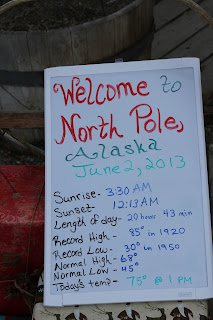 Welcome to
North Pole,
Alaska
June 2, 2013
Sunrise- 3:30 AM
Sunset 12:13 AM
Length of day- 20 hour 43 min
Record High- 95° in 1920
Record Low- 30° in 1950
Normal High- 68°
Normal Low- 45°
Todays temp- 75° @ 1 PM